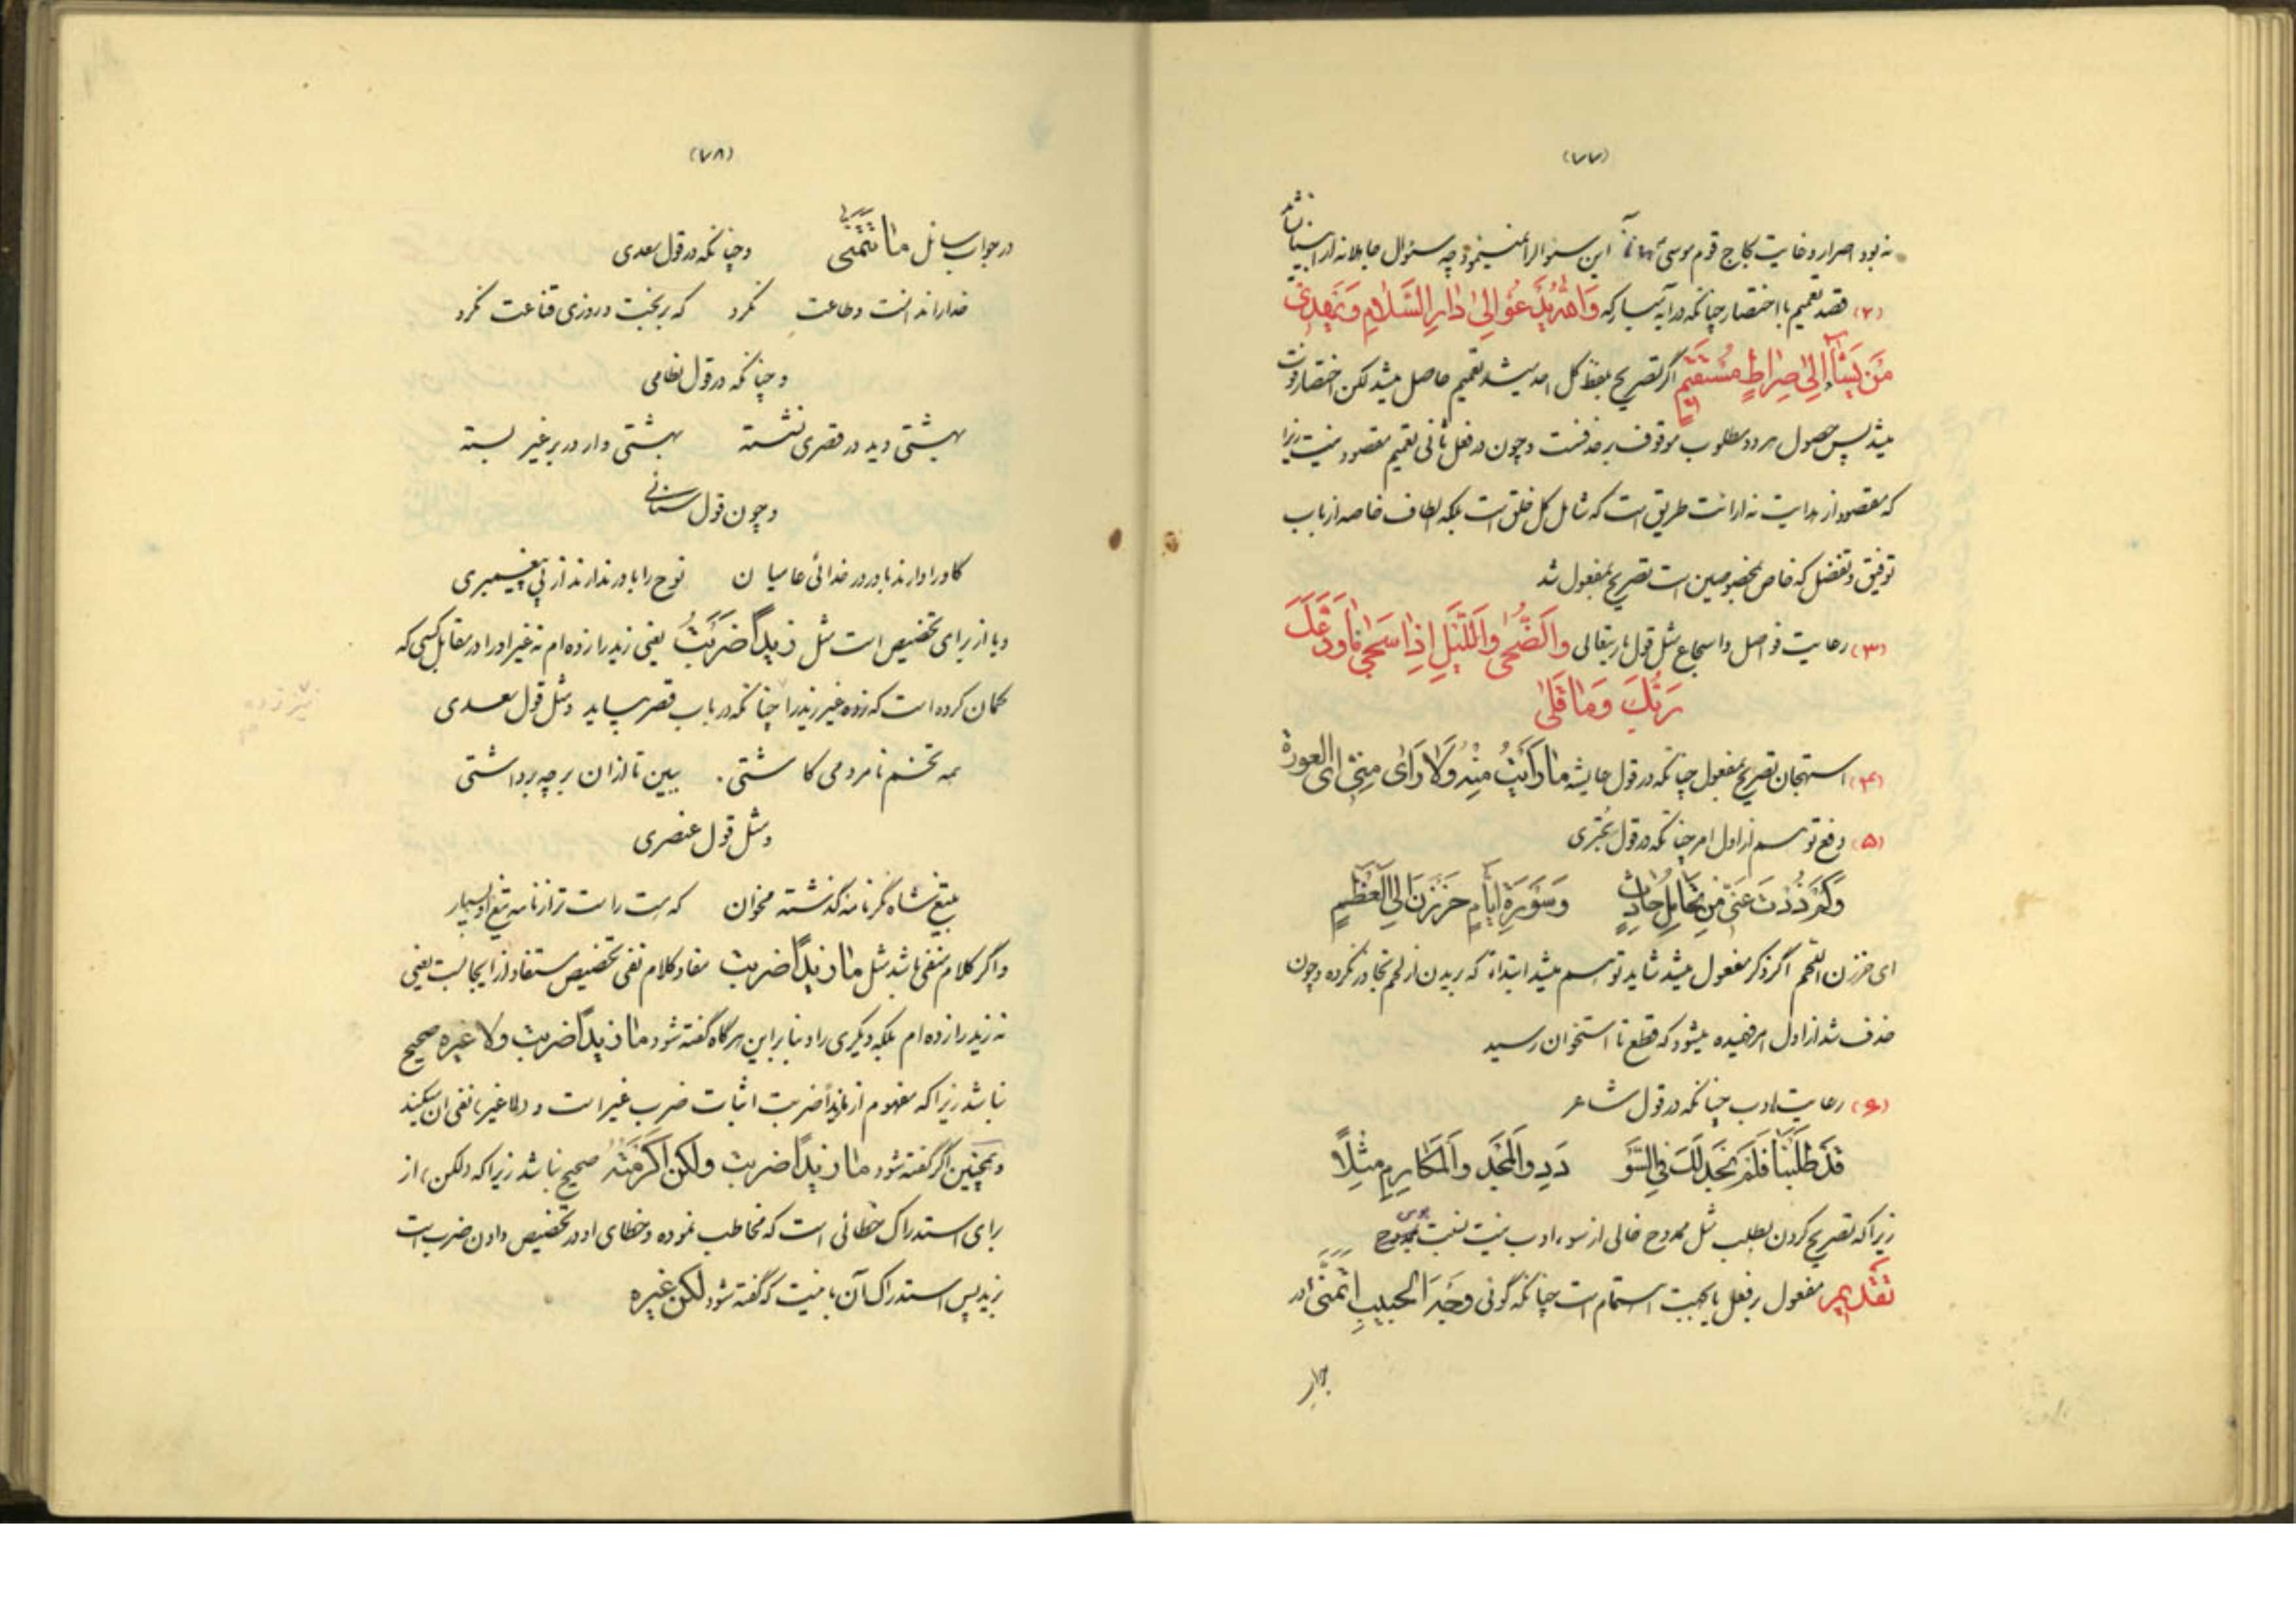 (۷۷)
نه بود اصرار و غایت لجاج قوم موسی این سئوال را نمینمود چه سئوال جاهلانه از انبیا نباشد
(۲) قصد تعمیم با اختصار چنانکه در آیه مبارکه وَاللهُ یَدْعُو اِلیٰ دٰارِ السَّلٰامِ وَیَهْدِی
مَنْ یَشٰاءُ اِلیٰ صِرٰاطٍ مُسْتَقیمٍ اگر تصریح بلفظ کل احد میشد تعمیم حاصل میشد لکن اختصار فوت
میشد پس حصول هر دو مطلوب موقوف بر حذفست و چون در فعل ثانی تعمیم مقصود نیست زیرا
که مقصود از هدایت نه ارائت طریق است که شامل کل خلق است بلکه الطاف خاصه از باب
توفیق و تفضل که خاص بمخصوصین است تصریح بمفعول شد
(۳) رعایت فواصل و اسجاع مثل قول باریتعالی وَالضُّحیٰ وَاللَّیْلِ اِذٰا سَجیٰ مٰا وَدَّعَکَ
رَبُّکَ وَمٰا قَلیٰ
(۴) استهجان تصریح بمفعول چنانکه در قول عایشه مٰا رَاَیْتُ مِنْهُ وَلٰا رَایٰ مِنّی ای العورة
(۵) دفع توهم از اول امر چنانکه در قول بحتری
وَکَمْ ذُدْتَ عَنّی مِنْ تَحٰامُلِ حٰادِثٍ وَسَوْرَةِ اَیّٰامٍ حَزَزْنَ اِلَی الْعَظْمِ
ای حززن اللحم اگر ذکر مفعول میشد شاید توهم میشد ابتداءً که بریدن از لحم تجاوز نکرده و چون
حذف شد از اول امر فهمیده میشود که قطع تا استخوان رسید
(۶) رعایت ادب چنانکه در قول شاعر
قَدْ طَلَبْنٰا فَلَمْ نَجِدْ لَکَ فِی السُّؤ دَدِ وَالْمَجْدِ وَالْمَکٰارِمِ مِثْلًا
زیرا که تصریح کردن بطلب مثل ممدوح خالی از سوء ادب نیست نسبت بممدوح
تقدیم مفعول بر فعل یا بجهت اهتمام است چنانکه گوئی وَجْهَ الْحَبیبِ اَتَمَنّیٰ در
جواب
(۷۸)
در جواب سائل مٰا تَتَمَنّیٰ و چنانکه در قول سعدی
خدا را ندانست و طاعت نکرد که بر بخت و روزی قناعت نکرد
و چنانکه در قول نظامی
بهشتی دید در قصری نشسته بهشتی وار در بر غیر بسته
و چون قول سنائی
گاو را دارند باور در خدائی عامیان نوح را باور ندارند از پی پیغمبری
و یا از برای تخصیص است مثل زیداً ضَرَبْتُ یعنی زید را زده‌ام نه غیر او را در مقابل کسی که
گمان کرده است که زده غیر زید را چنانکه در باب قصر بیاید و مثل قول سعدی
همه تخم نامردمی کاشتی ببین تا از ان بر چه برداشتی
و مثل قول عنصری
بتیغ شاه نگر نامه گذشته مخوان که هست راست تر از نامه تیغ او بسیار
و اگر کلام منفی باشد مثل مٰا زیداً ضربت مفاد کلام نفی تخصیص مستفاد از ایجابست یعنی
نه زید را زده‌ام بلکه دیگری را و بنابراین هر گاه گفته شود مٰا زیداً ضربت ولا غیره صحیح
نباشد زیرا که مفهوم از ما زیداً ضربت اثبات ضرب غیر است و (ولا غیره) نفی ان میکند
و همچنین اگر گفته شود مٰا زیداً ضربت ولکن اکرمته صحیح نباشد زیرا که (لکن) از
برای استدراک خطائی است که مخاطب نموده و خطای او در تخصیص دادن ضرب است
بزید پس استدراک آن باینست که گفته شود لکن غیره